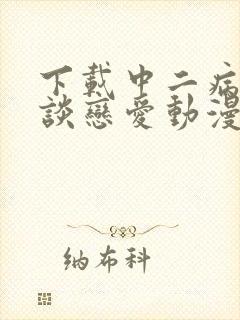 下載中二病
談戀愛動漫
纳布科